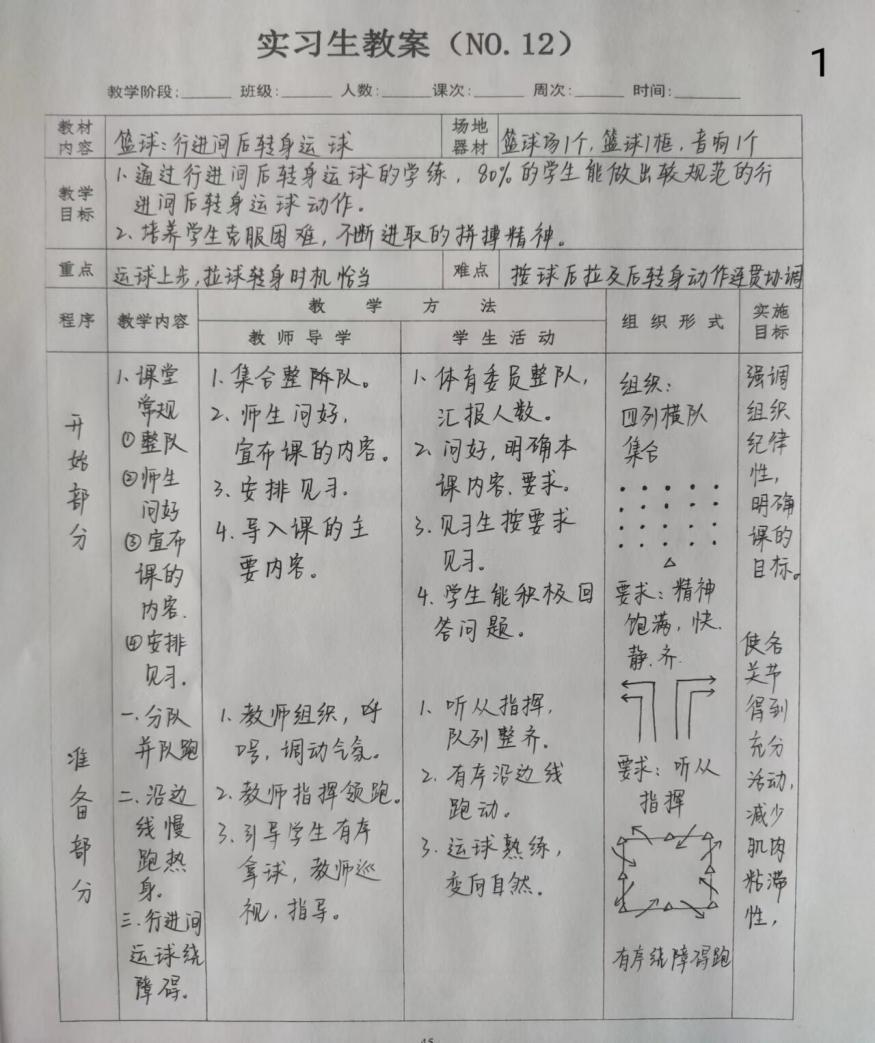 实习生教案（NO.12）
1
教学阶段:______ 班级:______ 人数:______课次:______ 周次:______ 时间:______
教材
内容
篮球:行进间后转身运球
场地
器材
篮球场1个,篮球1框,音响1个
教学
目标
1、通过行进间后转身运球的学练，80%的学生能做出较规范的行
进间后转身运球动作。
2、培养学生克服困难，不断进取的拼搏精神。
重点
运球上步,拉球转身时机恰当
难点
按球后拉及后转身动作连贯协调
程序
教学内容
教学方法
教师导学
学生活动
组织形式
实施
目标
开
始
部
分
1、课堂
常规
①整队
②师生
问好
③宣布
课的
内容.
④安排
见习.
1、集合整队。
2、师生问好,
宣布课的内容。
3、安排见习.
4、导入课的主
要内容。
1、体育委员整队,
汇报人数。
2、问好,明确本
课内容、要求。
3、见习生按要求
见习。
4、学生能积极回
答问题。
组织:
四列横队
集合
要求：精神
饱满，快.
静.齐.
强调
组织
纪律
性,
明确
课的
目标。
准
备
部
分
一、分队
并队跑
二、沿边
线慢
跑热
身.
三、行进间
运球绕
障碍.
1、教师组织，呼
口号,调动气氛。
2、教师指挥领跑。
3、引导学生有序
拿球，教师巡
视,指导。
1、听从指挥,
队列整齐.
2、有序沿边线
跑动。
3、运球熟练,
变向自然.
要求：听从
指挥
有序绕障碍跑
使各
关节
得到
充分
活动,
减少
肌肉
粘滞
性,
45